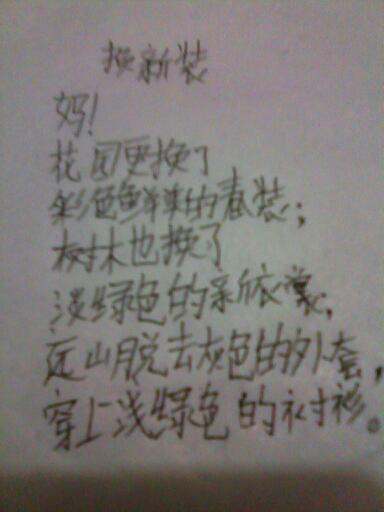 换新装
妈!
花园更换了
彩色鲜艳的春装;
树木也换了
淡绿色的新衣裳;
远山脱去灰色的外套,
穿上浅绿色的衬衫。